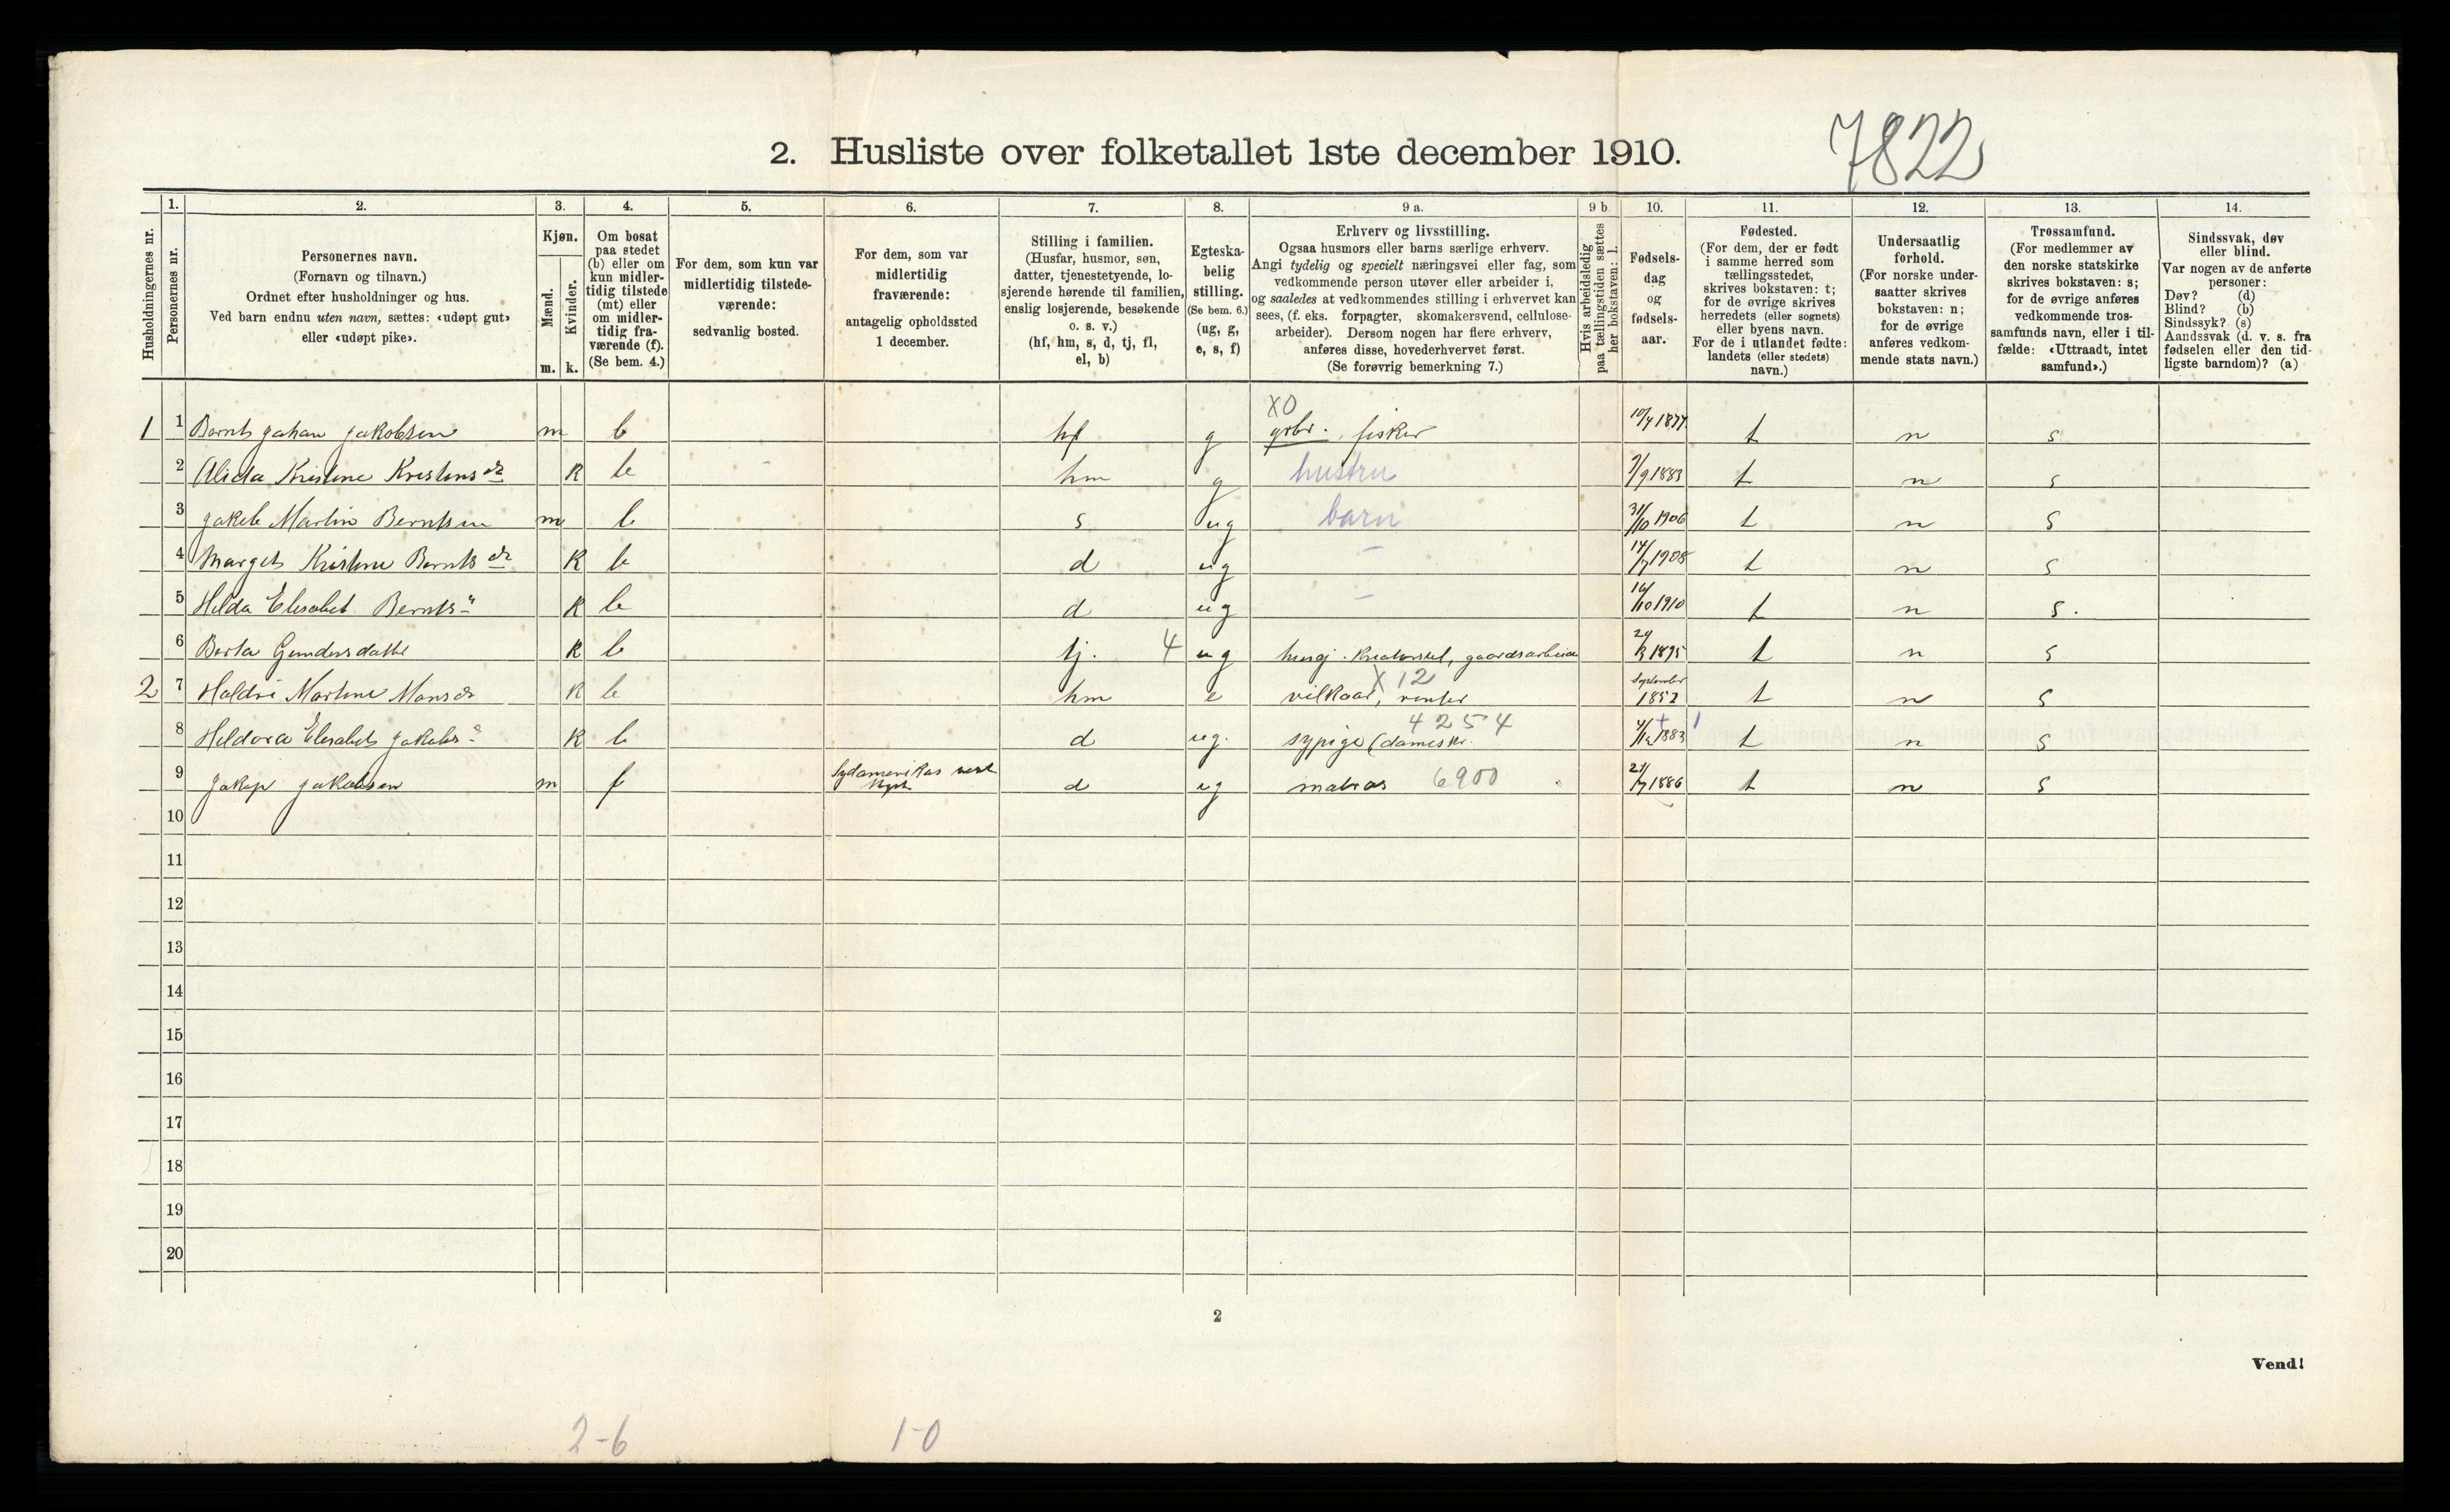 2. Husliste over folketallet 1ste december 1910.
7822
Husholdningernes nr.
1.
Personernes nr.
2.
Personernes navn.
(Fornavn og tilnavn.)
Ordnet efter husholdninger og hus.
Ved barn endnu uten navn, sættes: «udøpt gut»
eller «udøpt pike».
3.
Kjøn.
Mænd.
Kvinder.
m. k.
4.
Om bosat
paa stedet
(b) eller om
kun midler-
tidig tilstede
(mt) eller
om midler-
tidig fra-
værende (f).
(Se bem. 4.)
5.
For dem, som kun var
midlertidig tilstede-
værende:
sedvanlig bosted.
6.
For dem, som var
midlertidig
fraværende:
antagelig opholdssted
1 december.
7.
Stilling i familien.
(Husfar, husmor, søn,
datter, tjenestetyende, lo-
sjerende hørende til familien,
enslig losjerende, besøkende
o. s. v.)
(hf, hm, s, d, tj, fl,
el, b)
8.
Egteska-
belig
stilling.
(Se bem. 6.)
(ug, g,
e, s, f)
9 a.
Erhverv og livsstilling.
Ogsaa husmors eller barns særlige erhverv.
Angi tydelig og specielt næringsvei eller fag, som
vedkommende person utøver eller arbeider i,
og saaledes at vedkommendes stilling i erhvervet kan
sees, (f. eks. forpagter, skomakersvend, cellulose-
arbeider). Dersom nogen har flere erhverv,
anføres disse, hovederhvervet først.
(Se forøvrig bemerkning 7.)
9 b
Hvis arbeidsledig
paa tællingstiden sættes
her bokstaven: l.
10.
Fødsels-
dag
og
fødsels-
aar.
11.
Fødested.
(For dem, der er født
i samme herred som
tællingsstedet,
skrives bokstaven: t;
for de øvrige skrives
herredets (eller sognets)
eller byens navn.
For de i utlandet fødte:
landets (eller stedets)
navn.)
12.
Undersaatlig
forhold.
(For norske under-
saatter skrives
bokstaven: n;
for de øvrige
anføres vedkom-
mende stats navn.)
13.
Trossamfund.
(For medlemmer av
den norske statskirke
skrives bokstaven: s;
for de øvrige anføres
vedkommende tros-
samfunds navn, eller i til-
fælde: «Uttraadt, intet
samfund».)
14.
Sindssvak, døv
eller blind.
Var nogen av de anførte
personer:
Døv? (d)
Blind? (b)
Sindssyk? (s)
Aandssvak (d. v. s. fra
fødselen eller den tid-
ligste barndom)? (a)
X0
1 1 Bernt Johan Jakobsen m b hf g grbr. fisker 10/4 1877 t n s
2 Alida Kristine Kristens dr k b hm g hustru 7/9 1883 t n s
3 Jakob Martin Berntsen m b s ug barn 31/10 1906 t n s
4 Marget Kristine Bernts dr k b d ug – 14/7 1908 t n s
5 Helda Elesabet Bernts " k b d ug – 16/10 1910 t n s.
6 Berta Gundersdatter k b tj. 4 ug husgj. kreaturstel, gaardsarbeide 1895 t n s
X 12
2 7 Martine Mons dr k b hm e vilkaar, renter september 1852 t n s
4254
8 Heldora Elesabet Jakobs " k b d ug. sypige (dameskr. 1883 t n s
9 Jakop Jakobsen m f Sydamerikas vest kyst d ug matros 6900 1886 t n s
10
11
12
13
14
15
16
17
18
19
20
2
Vend!
2-6 1-0